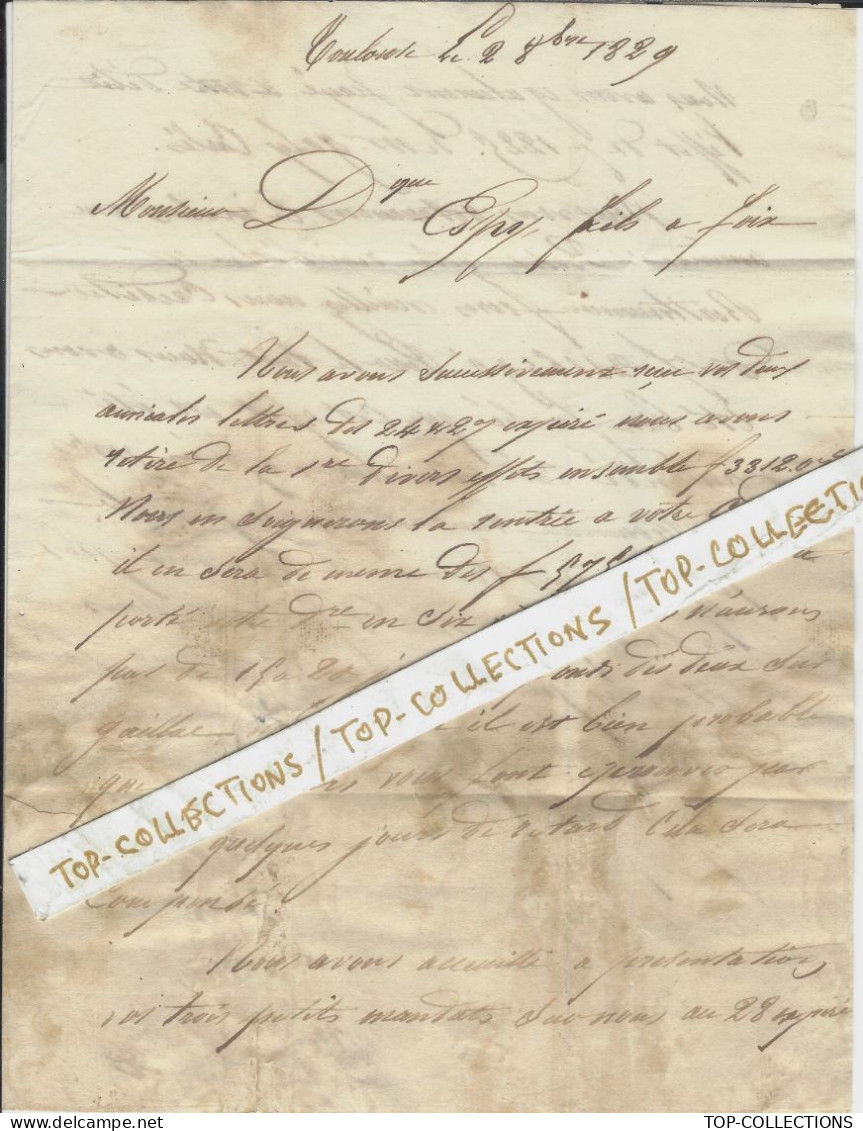 Toulouse Le 2 8bre 1829
Monsieur Dque Espy fils a foix
Nous avons successivement reçu vos deux
amicales lettres des 24 & 27 expiré nous avons
retiré de la 1re divers effets ensemble f 3312.0
Nous en soignerons la rentrée a votre
il en sera de meme des f 575
porté votre dre en six n'aurons
pas de 15 a 20 des deux sur
gaillac il est bien probable
que vous font eprouver par
quelques jours de retard Cela sera
Compensé.
Nous avons accueilli a présentation,
vos trois petits mandats sur nous au 28 expiré
TOP-COLLECTIONS / TOP-COLLECTIONS / TOP-COLLECTIONS
TOP-COLLECTIONS